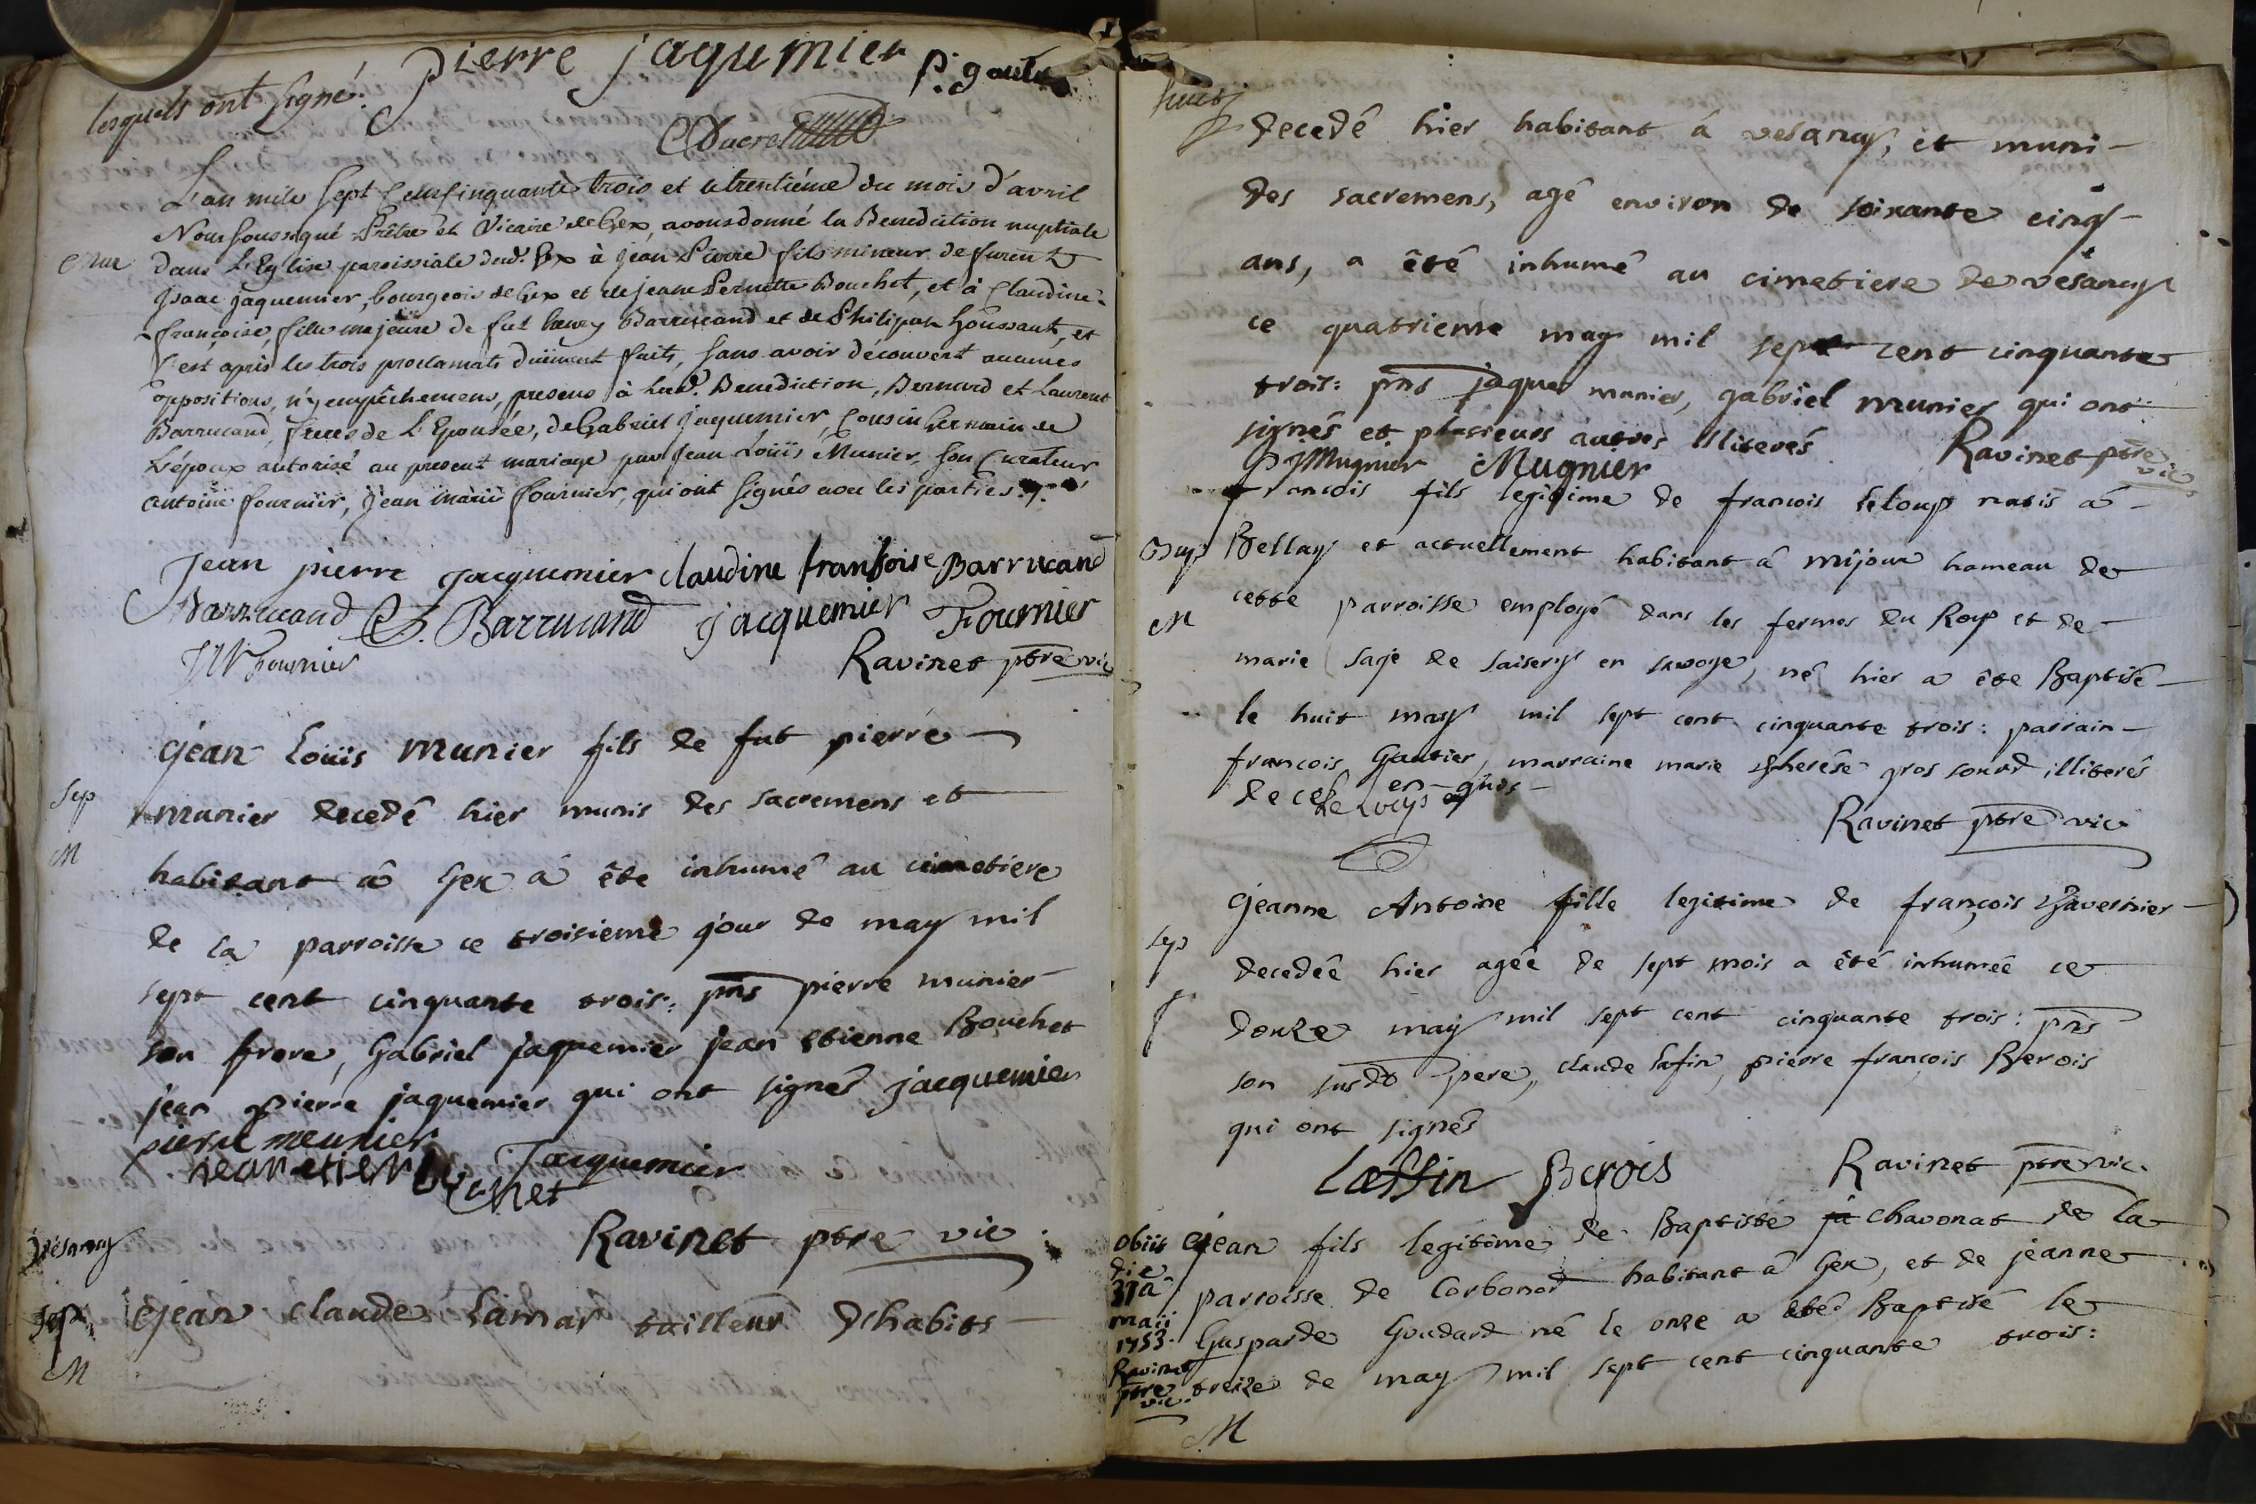 pierre jaqumier p. gautie
lesquels ont signé.
Ducret
L'an mile sept Cent Cinquante trois et le trentiéme du mois d'avril
Nous soussigné Prêtre et Vicaire de Gex, avons donné la Benediction nuptiale
dans L'Eglise paroissiale dud. Gex à jean Pierre fils mineur de furent
jsaac jaquemier, bourgeois de Gex et de jeane Pernette Bouchet, et à Claudine
françoise, fille majeure de fut Barrucand et de Philipah houssant, et
c'est après les trois proclamats düiment faits, sans avoir découvert aucunes
oppositions, n'y empêchemens, presens à lad. Benediction, Bernard et Laurent
Barrucand, freres de L'Epousée, de Gabriel jaquemier, Cousin Germain de
L'époux autorisé au present mariage par jean Loüis Munier, son Curateur
antoine fournier, jean marie fournier, qui ont signés avec les parties.
Jean pierre Jacquemier claudine fransoise Barrucand
Barrucand Barrucand jacquemier Fournier
JM fournier
Ravinet ptre vic
sep
M
jean Loüis munier fils de fut pierre
munier decedé hier munis des sacremens et
habitant â Gex â éte inhumé au cimetiere
de la parroisse ce troisieme jour de may mil
sept cent cinquante trois: pns pierre munier
son frere, Gabriel jaquemier jean etienne Bouchet
jean pierre jaquemier qui ont signés jacquemier
pierre meunier
jean etiene Bouchet Jacquemier
Ravinet ptre vic
Vésancy
sep.
M
jean claude Lamar tailleur d'habits
huit
decedé hier habitant â vesancy, et muni
des sacremens, agé environ de soixante cinq
ans, a été inhumé au cimetiere de vésancy
ce quatrieme may mil sept cent cinquante
trois: pns jaques munier, gabriel munier qui ont
signés et plusieurs autres illiterés Ravinet ptre vic
PJ Mugnier Mugnier
Bap
M
francois fils legitime de francois leloup natif â
Bellay et actuellement habitant â mijoux hameau de
cette parroisse employé dans les fermes du Roy et de
marie saje de saisery en savoye, né hier a éte Baptisé
le huit may mil sept cent cinquante trois: parrain
francois Gautier, marraine marie therése gros sourd illiterés
de ce
Ravinet ptre vic
sep
f
jeanne Antoine fille legitime de françois Tavernier
decedée hier agée de sept mois a été inhumée ce
douze may mil sept cent cinquante trois: pns
son susdt pere, claude lafin, pierre françois Berois
qui ont signés
Laffin Berois Ravinet ptre vic.
obiit
die
31a
maii
1753.
Ravinet
ptre
vic.
M
jean fils legitime de Baptiste chavonat de la
parroisse de Corbonod habitant â Gex, et de jeanne
Gasparde Goudard né le onze a été Baptisé le
treize de may mil sept cent cinquante trois: